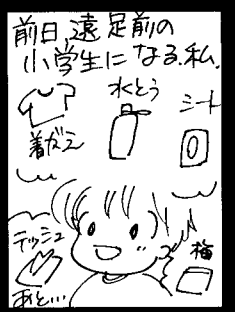 前日、遠足前の
小学生になる、私。
着がえ
水とう
シート
テッシュ
あと…
梅